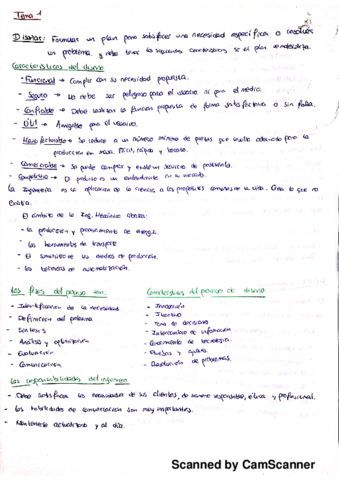 Tema 1
Diseñar: Formular un plan para satisfacer una necesidad específica o resolver
un problema, y debe tener las siguientes características si el plan es realizable.
Características del diseño
- Funcional → Cumplir con su necesidad propuesta.
- Seguro → No debe ser peligroso para el usuario ni para el medio.
- Confiable → Debe realizar la función propuesta de forma satisfactoria o sin fallas.
- Útil → Amigable para el usuario.
- Manufacturable → Se reduce a un número mínimo de partes que resulte adecuado para la
producción en masa. Fácil, rápido y barato.
- Comercializable → Se puede comprar y existe un servicio de
- Competitivo → El producto es un contendiente en su mercado.
La Ingeniería es la aplicación de la ciencia a los propósitos comunes de la vida. Crea lo que no
Existía.
El ámbito de la Ing. Mecánica abarca:
- La producción y procesamiento de energía.
- Las herramientas de transporte
- El suministro de los medios de producción.
- Las técnicas de automatización.
Las fases del proceso son:
- Identificación de la necesidad
- Definición del problema
- Síntesis
- Análisis y optimización
- Evaluación
- Comunicación
Características del proceso de diseño
- Innovación
- Iterativo
- Toma de decisiones
- Intercambio de información
- Conocimiento de tecnología
- Pruebas y ajustes.
- Resolución de problemas.
Las responsabilidades del ingeniero
- Debe satisfacer las necesidades de sus clientes, de manera responsable, ética y profesional.
- Las habilidades de comunicación son muy importantes.
- Mantenerse actualizado y al día.
Scanned by CamScanner